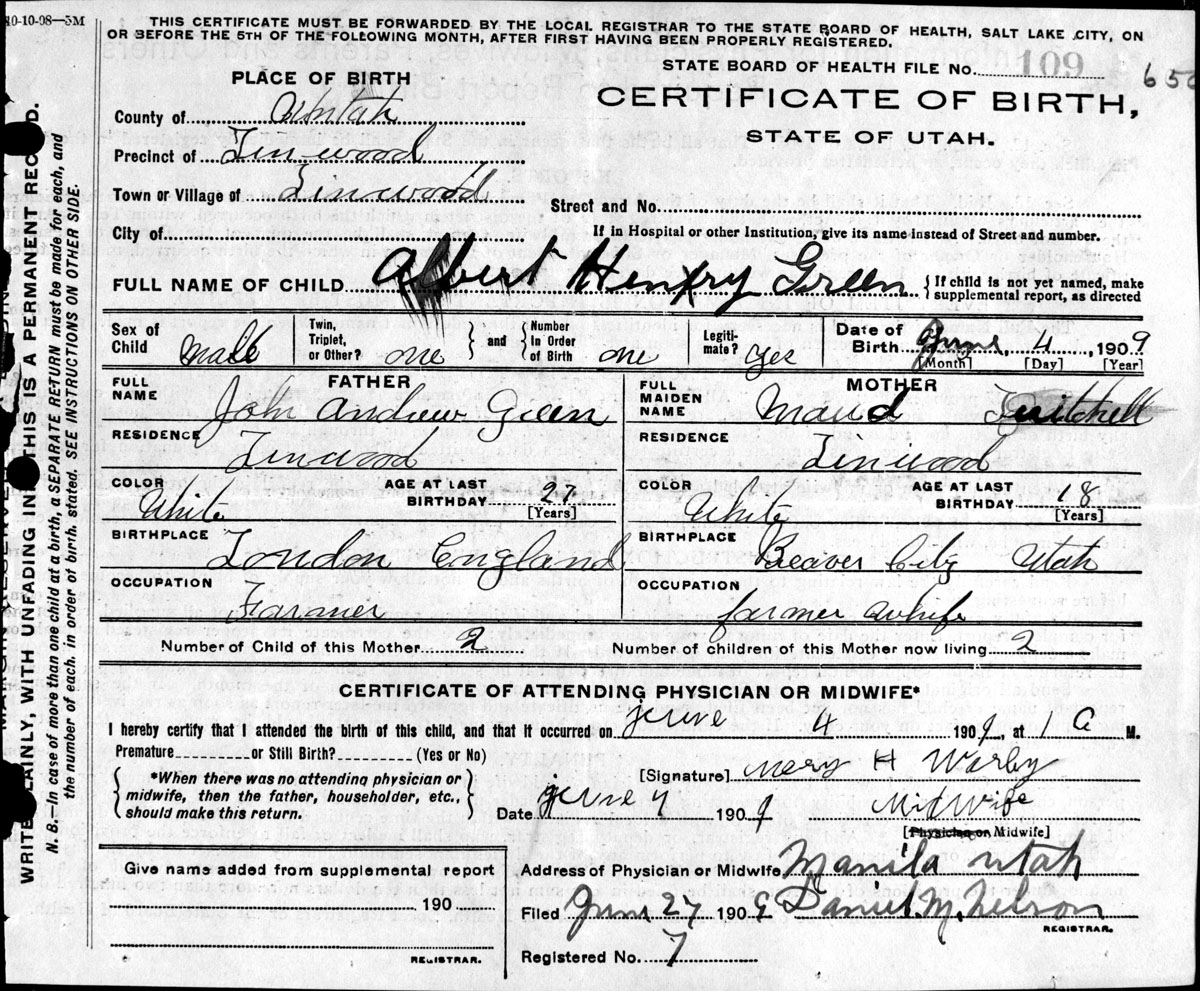 10-10-08—3M
THIS CERTIFICATE MUST BE FORWARDED BY THE LOCAL REGISTRAR TO THE STATE BOARD OF HEALTH, SALT LAKE CITY, ON
OR BEFORE THE 5TH OF THE FOLLOWING MONTH, AFTER FIRST HAVING BEEN PROPERLY REGISTERED.
STATE BOARD OF HEALTH FILE No. 109
PLACE OF BIRTH
CERTIFICATE OF BIRTH,
STATE OF UTAH.
County of Uintah
Precinct of Linwood
Town or Village of Linwood
Street and No.
City of
If in Hospital or other Institution, give its name instead of Street and number.
FULL NAME OF CHILD Albert Henry Green {If child is not yet named, make
supplemental report, as directed
Sex of Child male Twin, Triplet, or Other? one } and { Number In Order of Birth one Legitimate? yes Date of Birth June 4, 1909
[Month] [Day] [Year]
FATHER MOTHER
FULL NAME John Andrew Green FULL MAIDEN NAME Maud Twitchell
RESIDENCE Linwood RESIDENCE Linwood
COLOR White AGE AT LAST BIRTHDAY [Years] COLOR White AGE AT LAST BIRTHDAY 18 [Years]
BIRTHPLACE London England BIRTHPLACE Beaver City Utah
OCCUPATION Farmer OCCUPATION farmer whife
Number of Child of this Mother 2 Number of children of this Mother now living 2
CERTIFICATE OF ATTENDING PHYSICIAN OR MIDWIFE*
I hereby certify that I attended the birth of this child, and that it occurred on june 4 1909, at 1 A M.
Premature or Still Birth? (Yes or No)
{ *When there was no attending physician or
midwife, then the father, householder, etc.,
should make this return. }
[Signature] Mary H Warby
Date june 1909 MidWife
[Physician or Midwife]
Give name added from supplemental report
190
REGISTRAR.
Address of Physician or Midwife Manila Utah
Filed June 27 1909 Daniel M. Nelson
REGISTRAR.
Registered No. 7
WRITE PLAINLY, WITH UNFADING INK THIS IS A PERMANENT RECORD.
N. B.—In case of more than one child at a birth, a SEPARATE RETURN must be made for each, and
the number of each. in order of birth. stated. SEE INSTRUCTIONS ON OTHER SIDE.